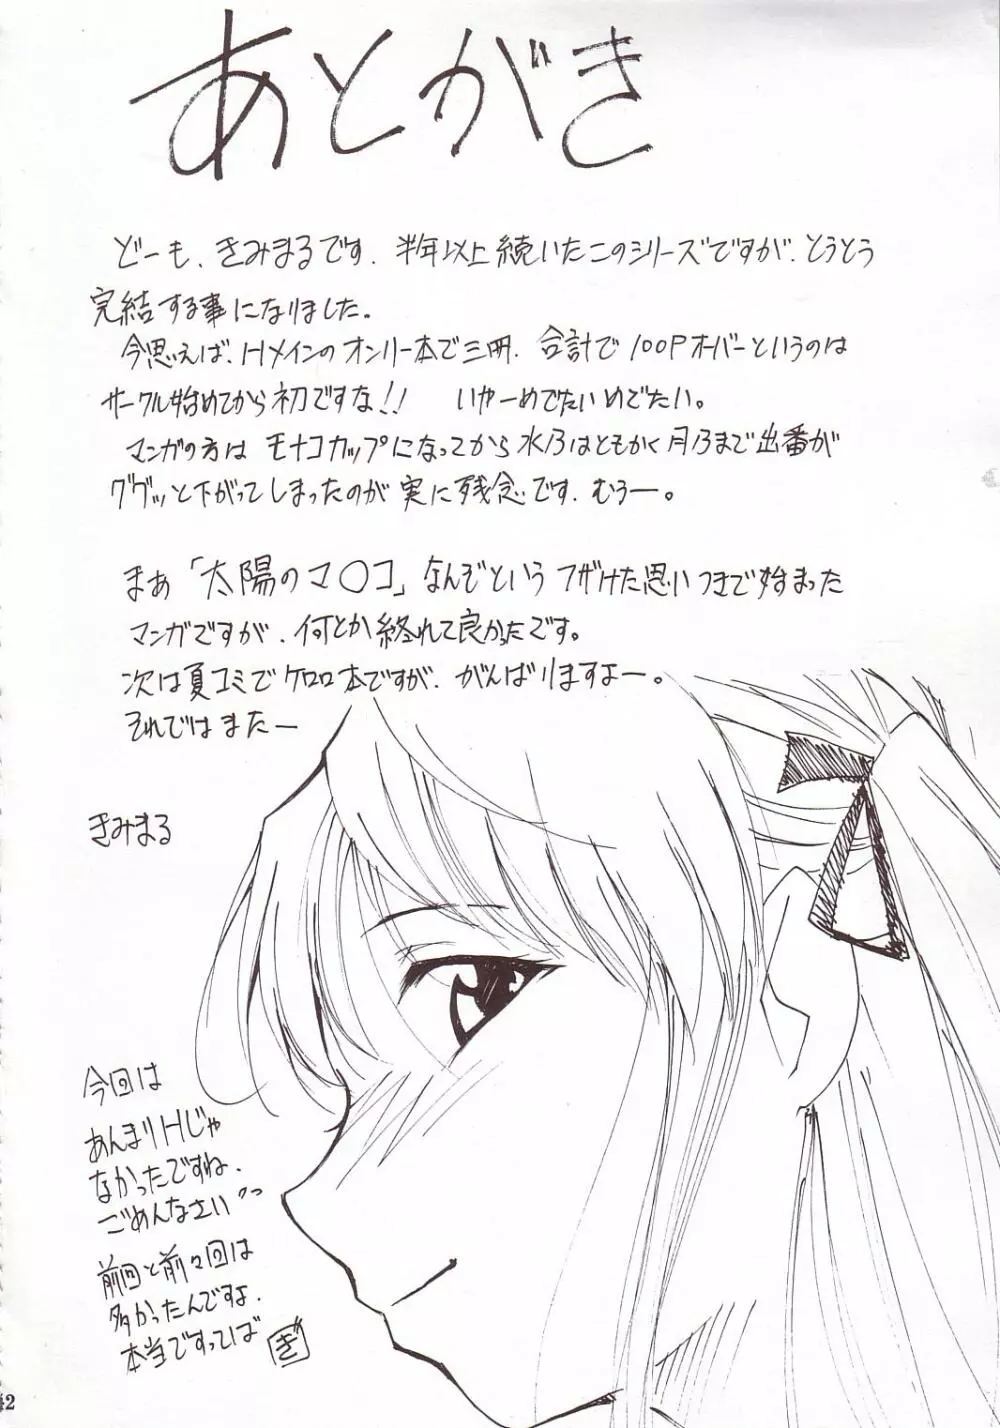 あとがき
どーも、きみまるです。半年以上続いたこのシリーズですが、とうとう
完結する事になりました。
今思えば、Hメインのオンリー本で三冊、合計で100Pオーバーというのは
サークル始めてから初ですな!! いやーめでたいめでたい。
マンガの方はモナコカップになってから水乃はともかく月乃まで出番が
ググッと下がってしまったのが実に残念です。むぅー。
まぁ「太陽のマ〇コ」なんぞというフザけた思いつきで始まった
マンガですが、何とか終れて良かったです。
次は夏コミでケロロ本ですが、がんばりますよー。
それではまたー
きみまる
今回は
あんまりHじゃ
なかったですね、
ごめんなさいっ
前回と前々回は
多かったんですよ、
本当ですってば
ぎ
42